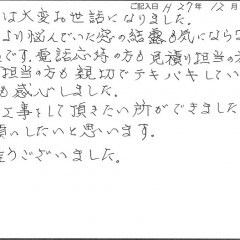 ご記入日 H 27年 12月
は大変お世話になりました。
より悩んでいた窓の結露も気にならな
です。電話応待の方も見積り担当の
担当の方も親切でテキパキしてい
も感心しました。
工事をして頂きたい所ができました
願いしたいと思います。
うございました。